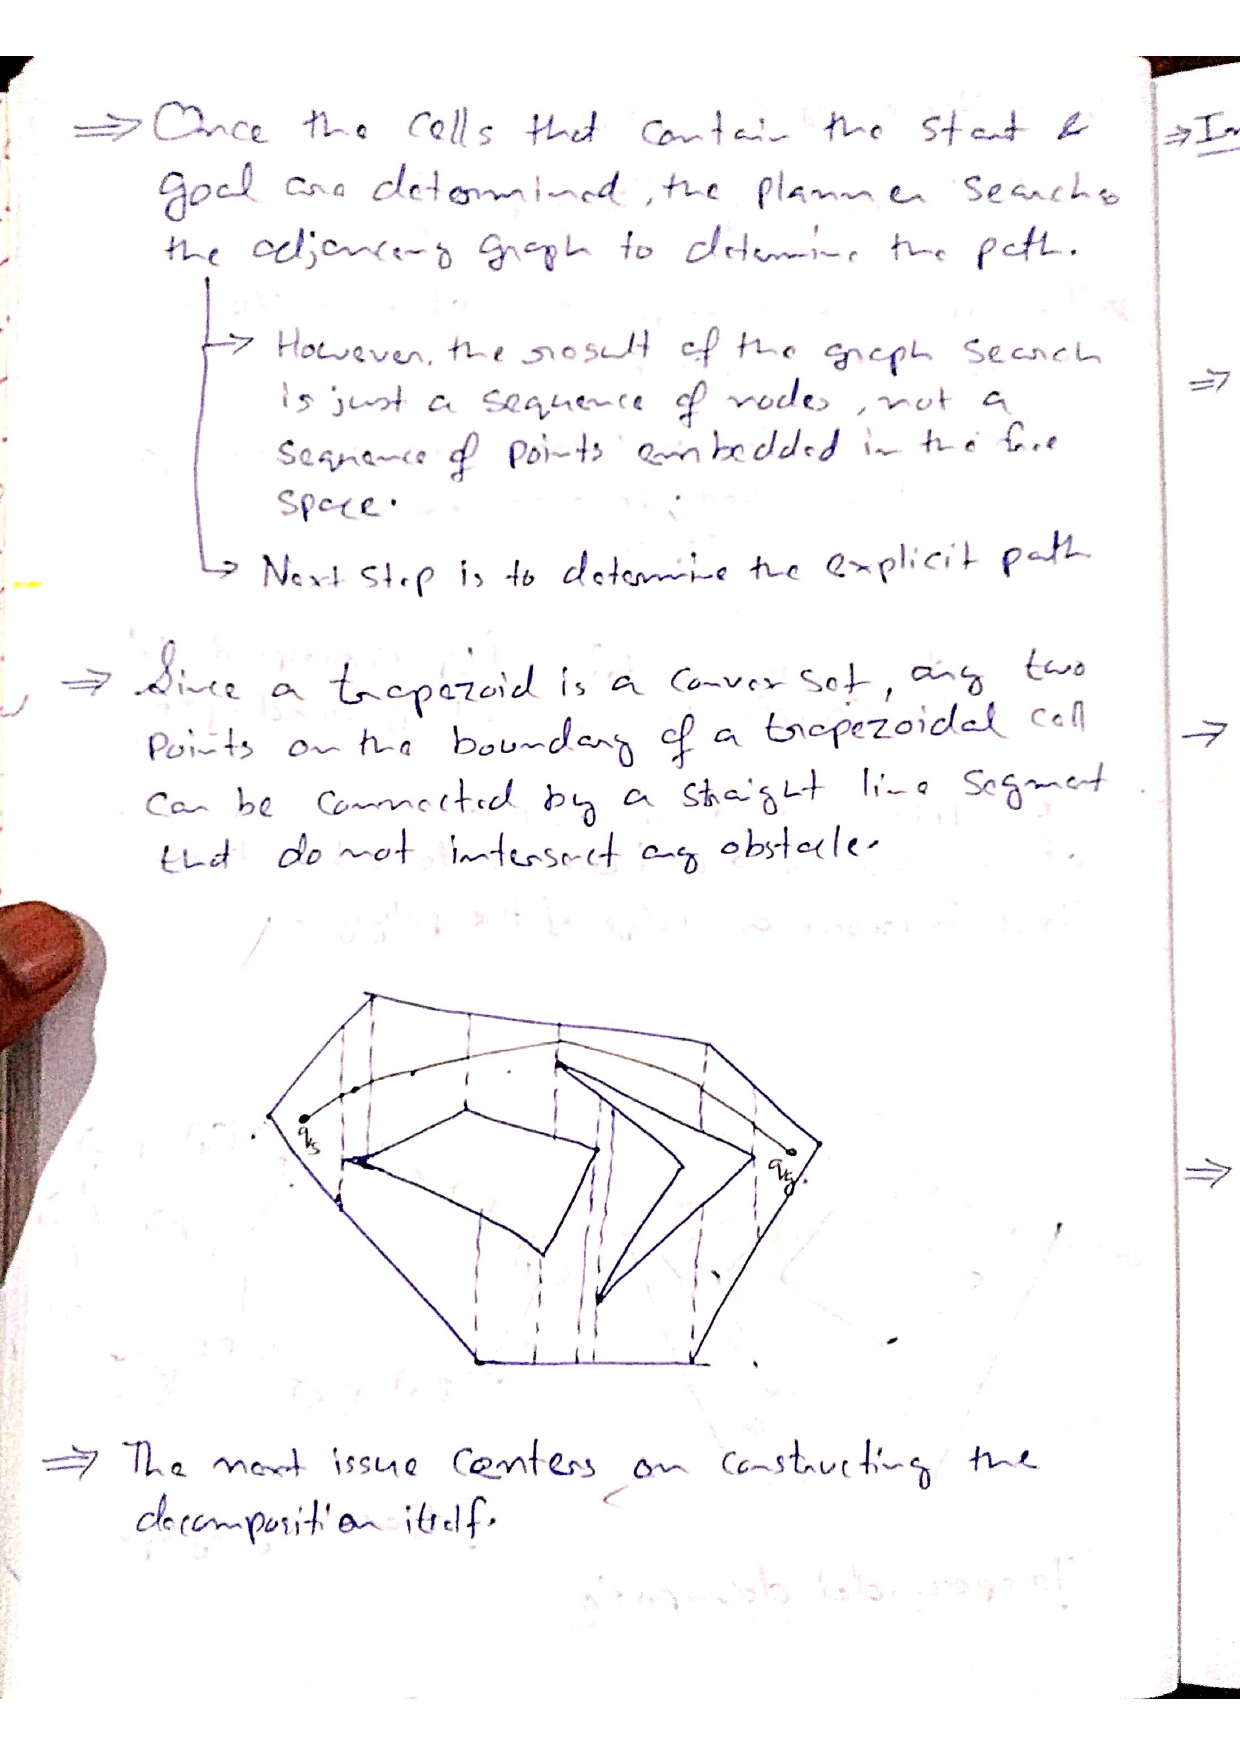 ⇒ Once the cells that contain the start &
goal are determined, the planner searches
the adjancency graph to determine the path.
→ However, the result of the graph search
is just a sequence of nodes, not a
sequence of points embedded in the free
space.
→ Next step is to determine the explicit path
⇒ Since a trapezoid is a convex set, any two
points on the boundary of a trapezoidal cell
can be connected by a straight line segment
that do not intersect any obstacle.
qs
qg
⇒ The next issue centers on constructing the
decomposition itself.
⇒ In